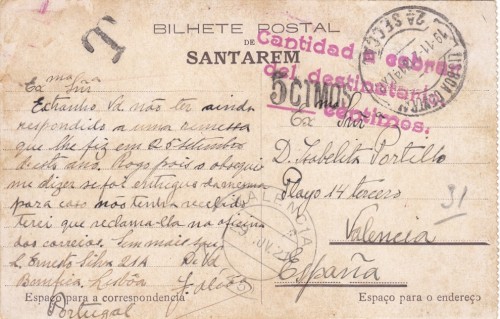 BILHETE POSTAL
DE
SANTAREM
T
Cantidad a cobrar
del destinatario
5 CTMOS
centimos.
LISBOA CENTRAL
2ª SECÇÃO
Exma Snra
Extranho Vª não ter ainda
respondido a uma remessa
que lhe fiz em 20 setembro
deste ano. Rogo pois o obsequio
me dizer se foi entregue da mesma
para caso nos tenha recebido
terei que reclamal-la na oficina
dos correios. Sem mais sou
L. Ernesto Silva 21A De Vª
Bemfica, Lisbôa
Portugal
Exª Snrª
D. Isabelita Portillo
Playo 14 tercero
Valencia
España
31
VALENCIA
Espaço para a correspondencia
Espaço para o endereço